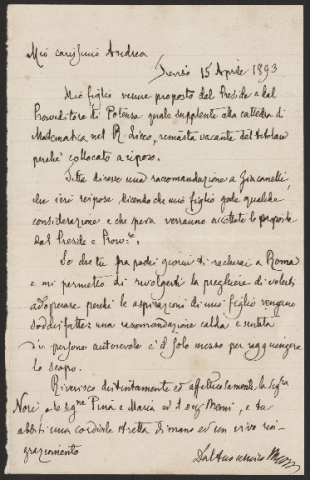 Mio carissimo Andrea
Treviso 15 Aprile 1893
Mio figlio venne proposto dal Preside e dal
Provveditore di Potenza quale supplente alla cattedra di
Matematica nel R. Liceo, rimasta vacante del titolare
perchè collocato a riposo.
diressi una raccomandazione a
che ieri rispose dicendo che mio figlio gode qualche
considerazione e che spera verranno accettate le proposte
del Preside e Provv.re
So che tu fra pochi giorni di recherai a Roma
e mi permetto di rivolgerti la preghiera di volerti
adoperare perchè le aspirazioni di mio figlio vengano
soddisfatte: una raccomandazione calda e sentita
di persone autorevole è il solo mezzo per raggiungere
lo scopo.
Riverisco distintamente ed affettuosamente la Sig.ra
e le Sig.ne Pina e Maria ed il Sig.
abbiti una cordiale stretta di mano ed un vivo rin-
graziamento
Dal tuo amico